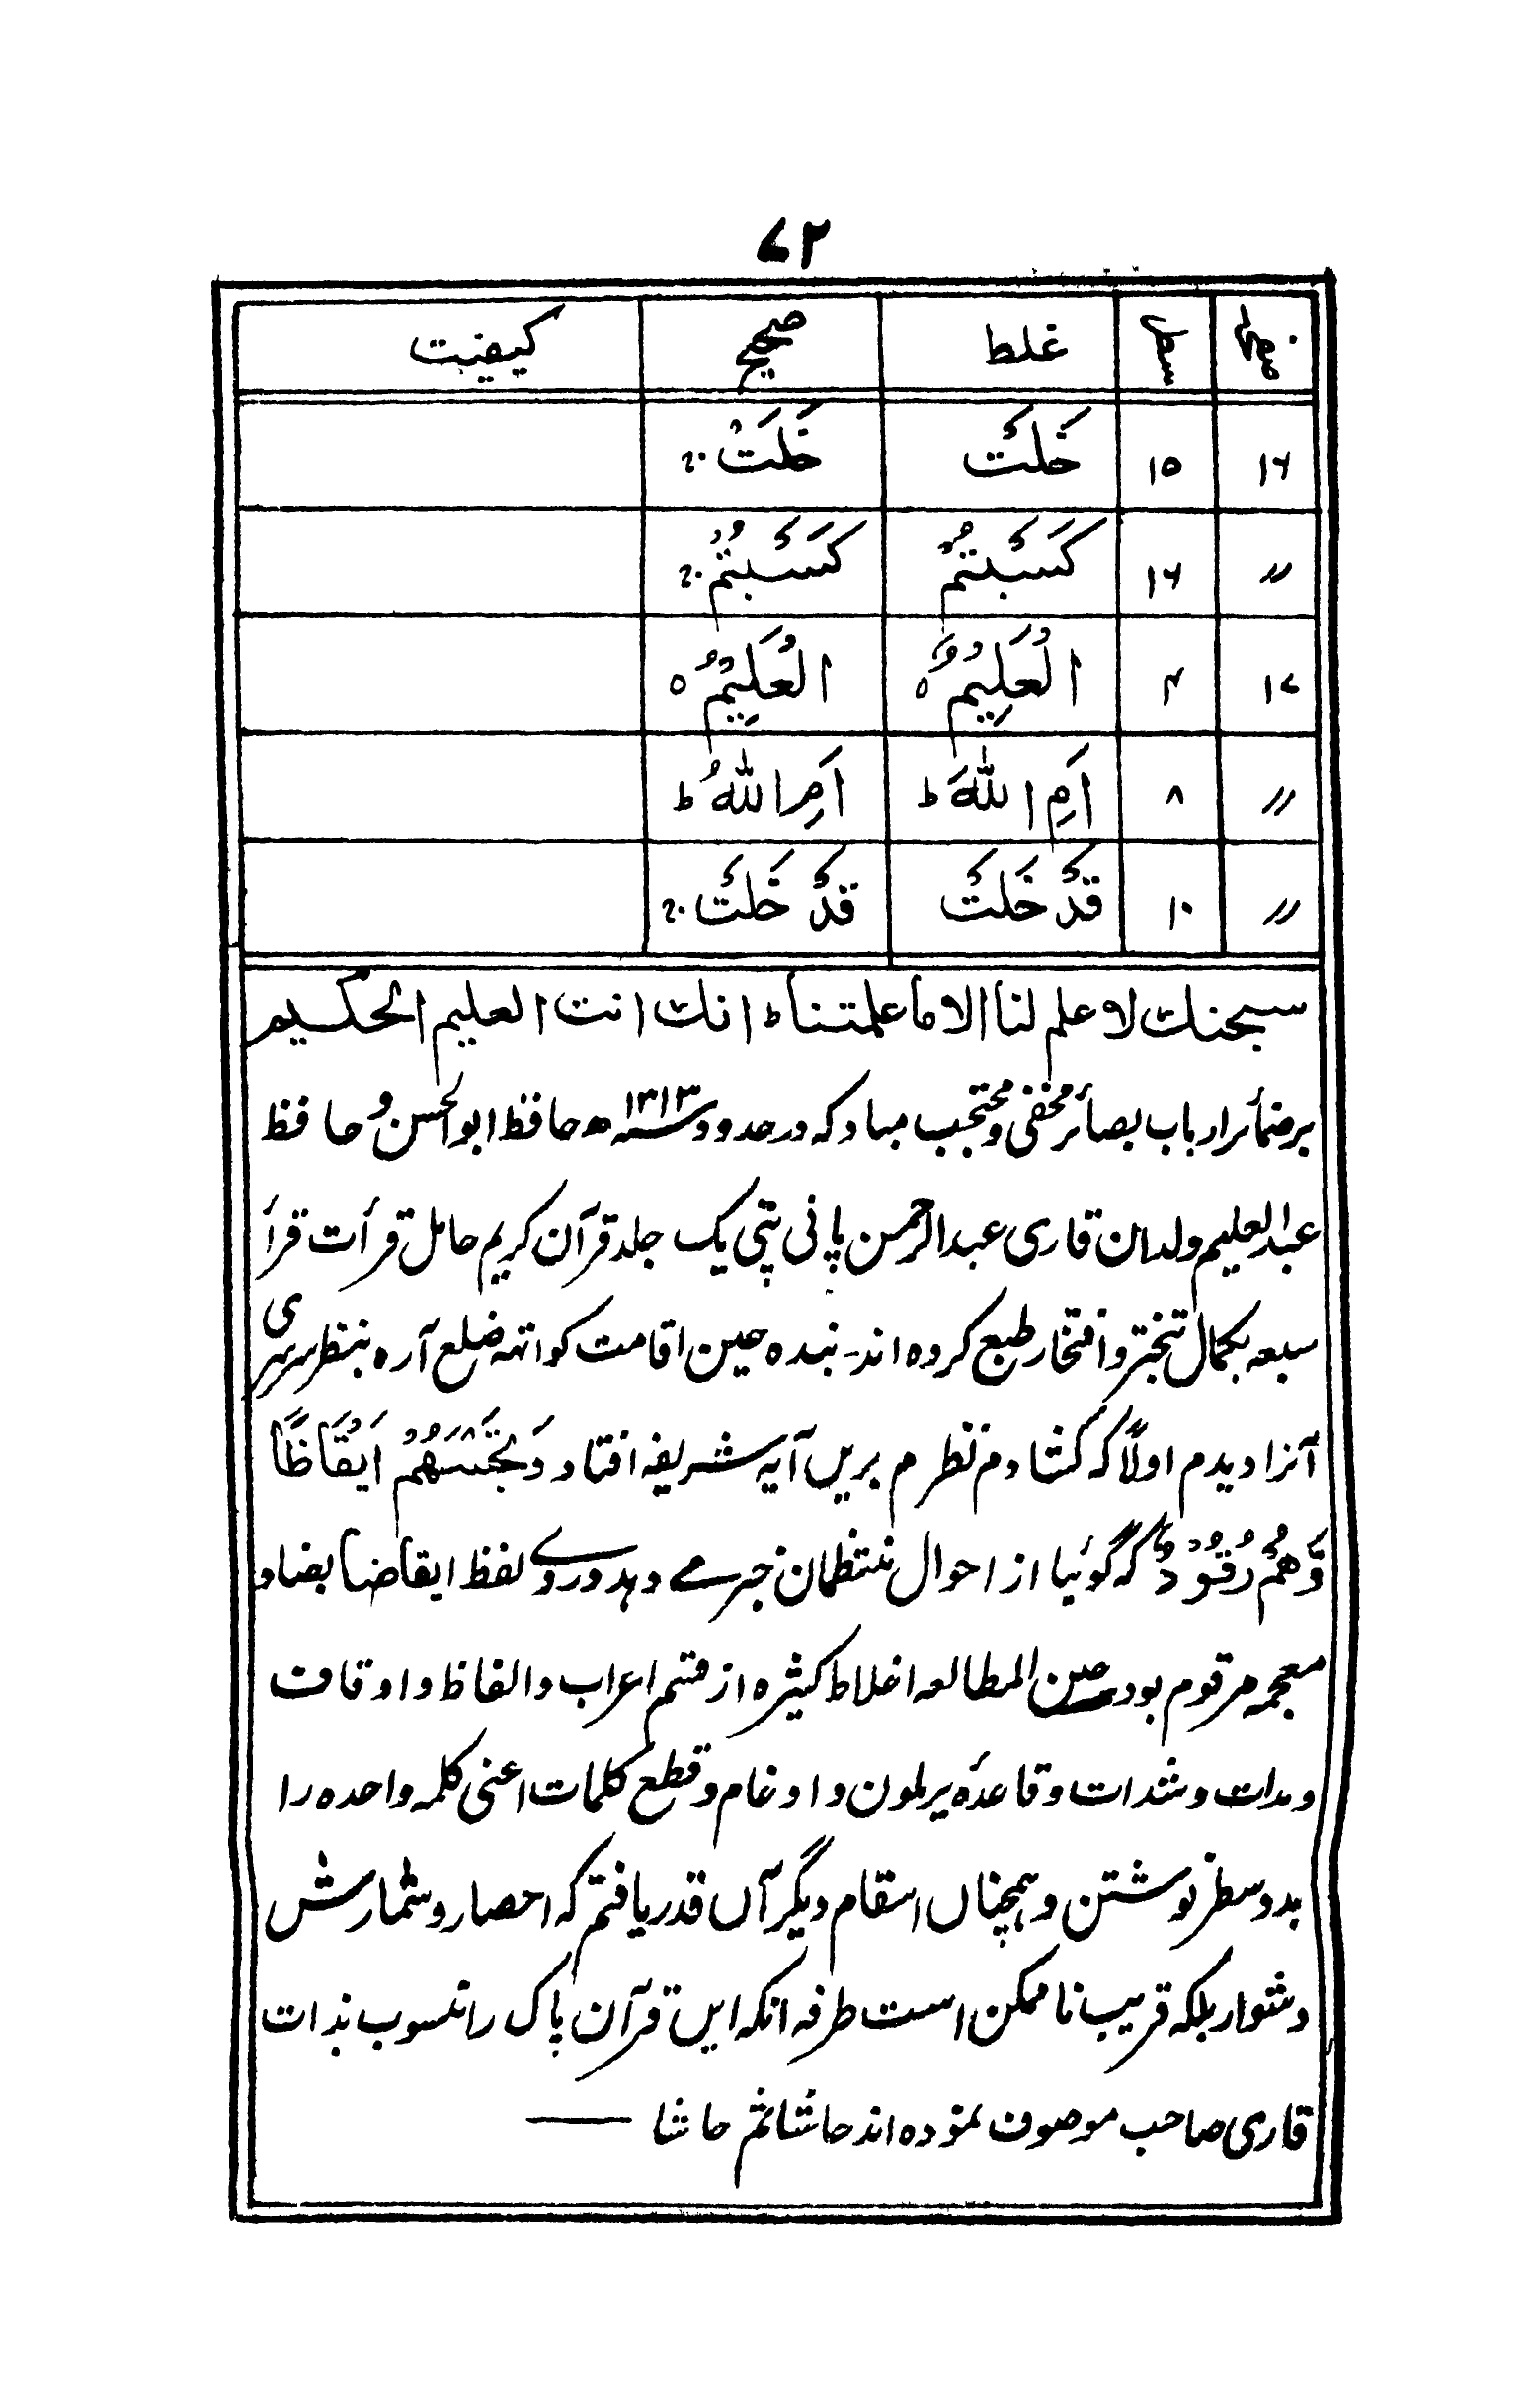 ۷۲
صفحہ سطر غلط صحیح کیفیت
۱۶ ۱۵ خَلَتْ خَلَتْ
〃 ۱۶ كَسَبْتُمْ كَسَبْتُمْ
۱۷ ۴ الْعَلِيْمُ ہ الْعَلِيْمُ ہ
〃 ۸ اَمِ اللّٰهَ ط اَمِ اللّٰهُ ط
〃 ۱۰ قَدْ خَلَتْ قَدْ خَلَتْ
سبحنك لا علم لنا الا ما علمتنا ط انك انت العليم الحكيم
بر ضمائر ارباب بصائر مخفی و محتجب مباد که در حدود سنہ ۱۳۱۳ھ حافظ ابو الحسن و حافظ
عبد العلیم ولدان قاری عبدالرحمن پانی پتی یک جلد قرآن کریم حامل قرأت قرأ
سبعه بکمال تبختر و افتخار طبع کرده اند۔ بنده حین اقامت کواتهه ضلع آره بنظر سرسری
آنرا دیدم اولاً که کشادم نظرم بریں آیه شریفه افتاد وَتَحْسَبُهُمْ اَيْقَاظًا
وَّهُمْ رُقُوْدٌ که گوئیا از احوال منتظمان خبر مے دهد دروے لفظ ایقاضا بضاد
معجمه مرقوم بود حین المطالعه اغلاط کثیره از قسم اعراب والفاظ و اوقاف
و مدات و شدات و قاعدۂ یرملون و ادغام و قطع کلمات اعنی کلمه واحده را
بدو سطر نوشتن و ہمچناں اسقام دیگر آں قدر یافتم که احصار و شمارش
دشوار بلکه قریب ناممکن است طرفه انکه ایں قرآن پاک را منسوب بذات
قاری صاحب موصوف نموده اند حاشا ثم حاشا ——